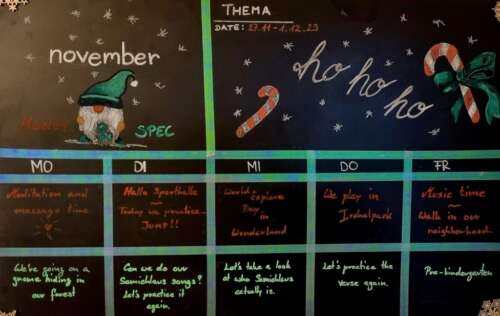 THEMA
DATE: 27.11 - 1.12.23
november
ho ho ho
SPEC
MO
DI
MI
DO
FR
Meditation and
massage time
Hallo Sporthalle
~
Today we practice
JUMP!!
World explore
Day in
Wonderland
We play in
Irchelpark
Music time
~
Walk in our
neighborhood
We're going on a
gnome hiding in
our forest
Can we do our
Samichlaus songs?
Let's practice it
again.
Let's take a look
at who Samichlaus
actually is.
Let's practice the
verse again.
Pre-kindergarten